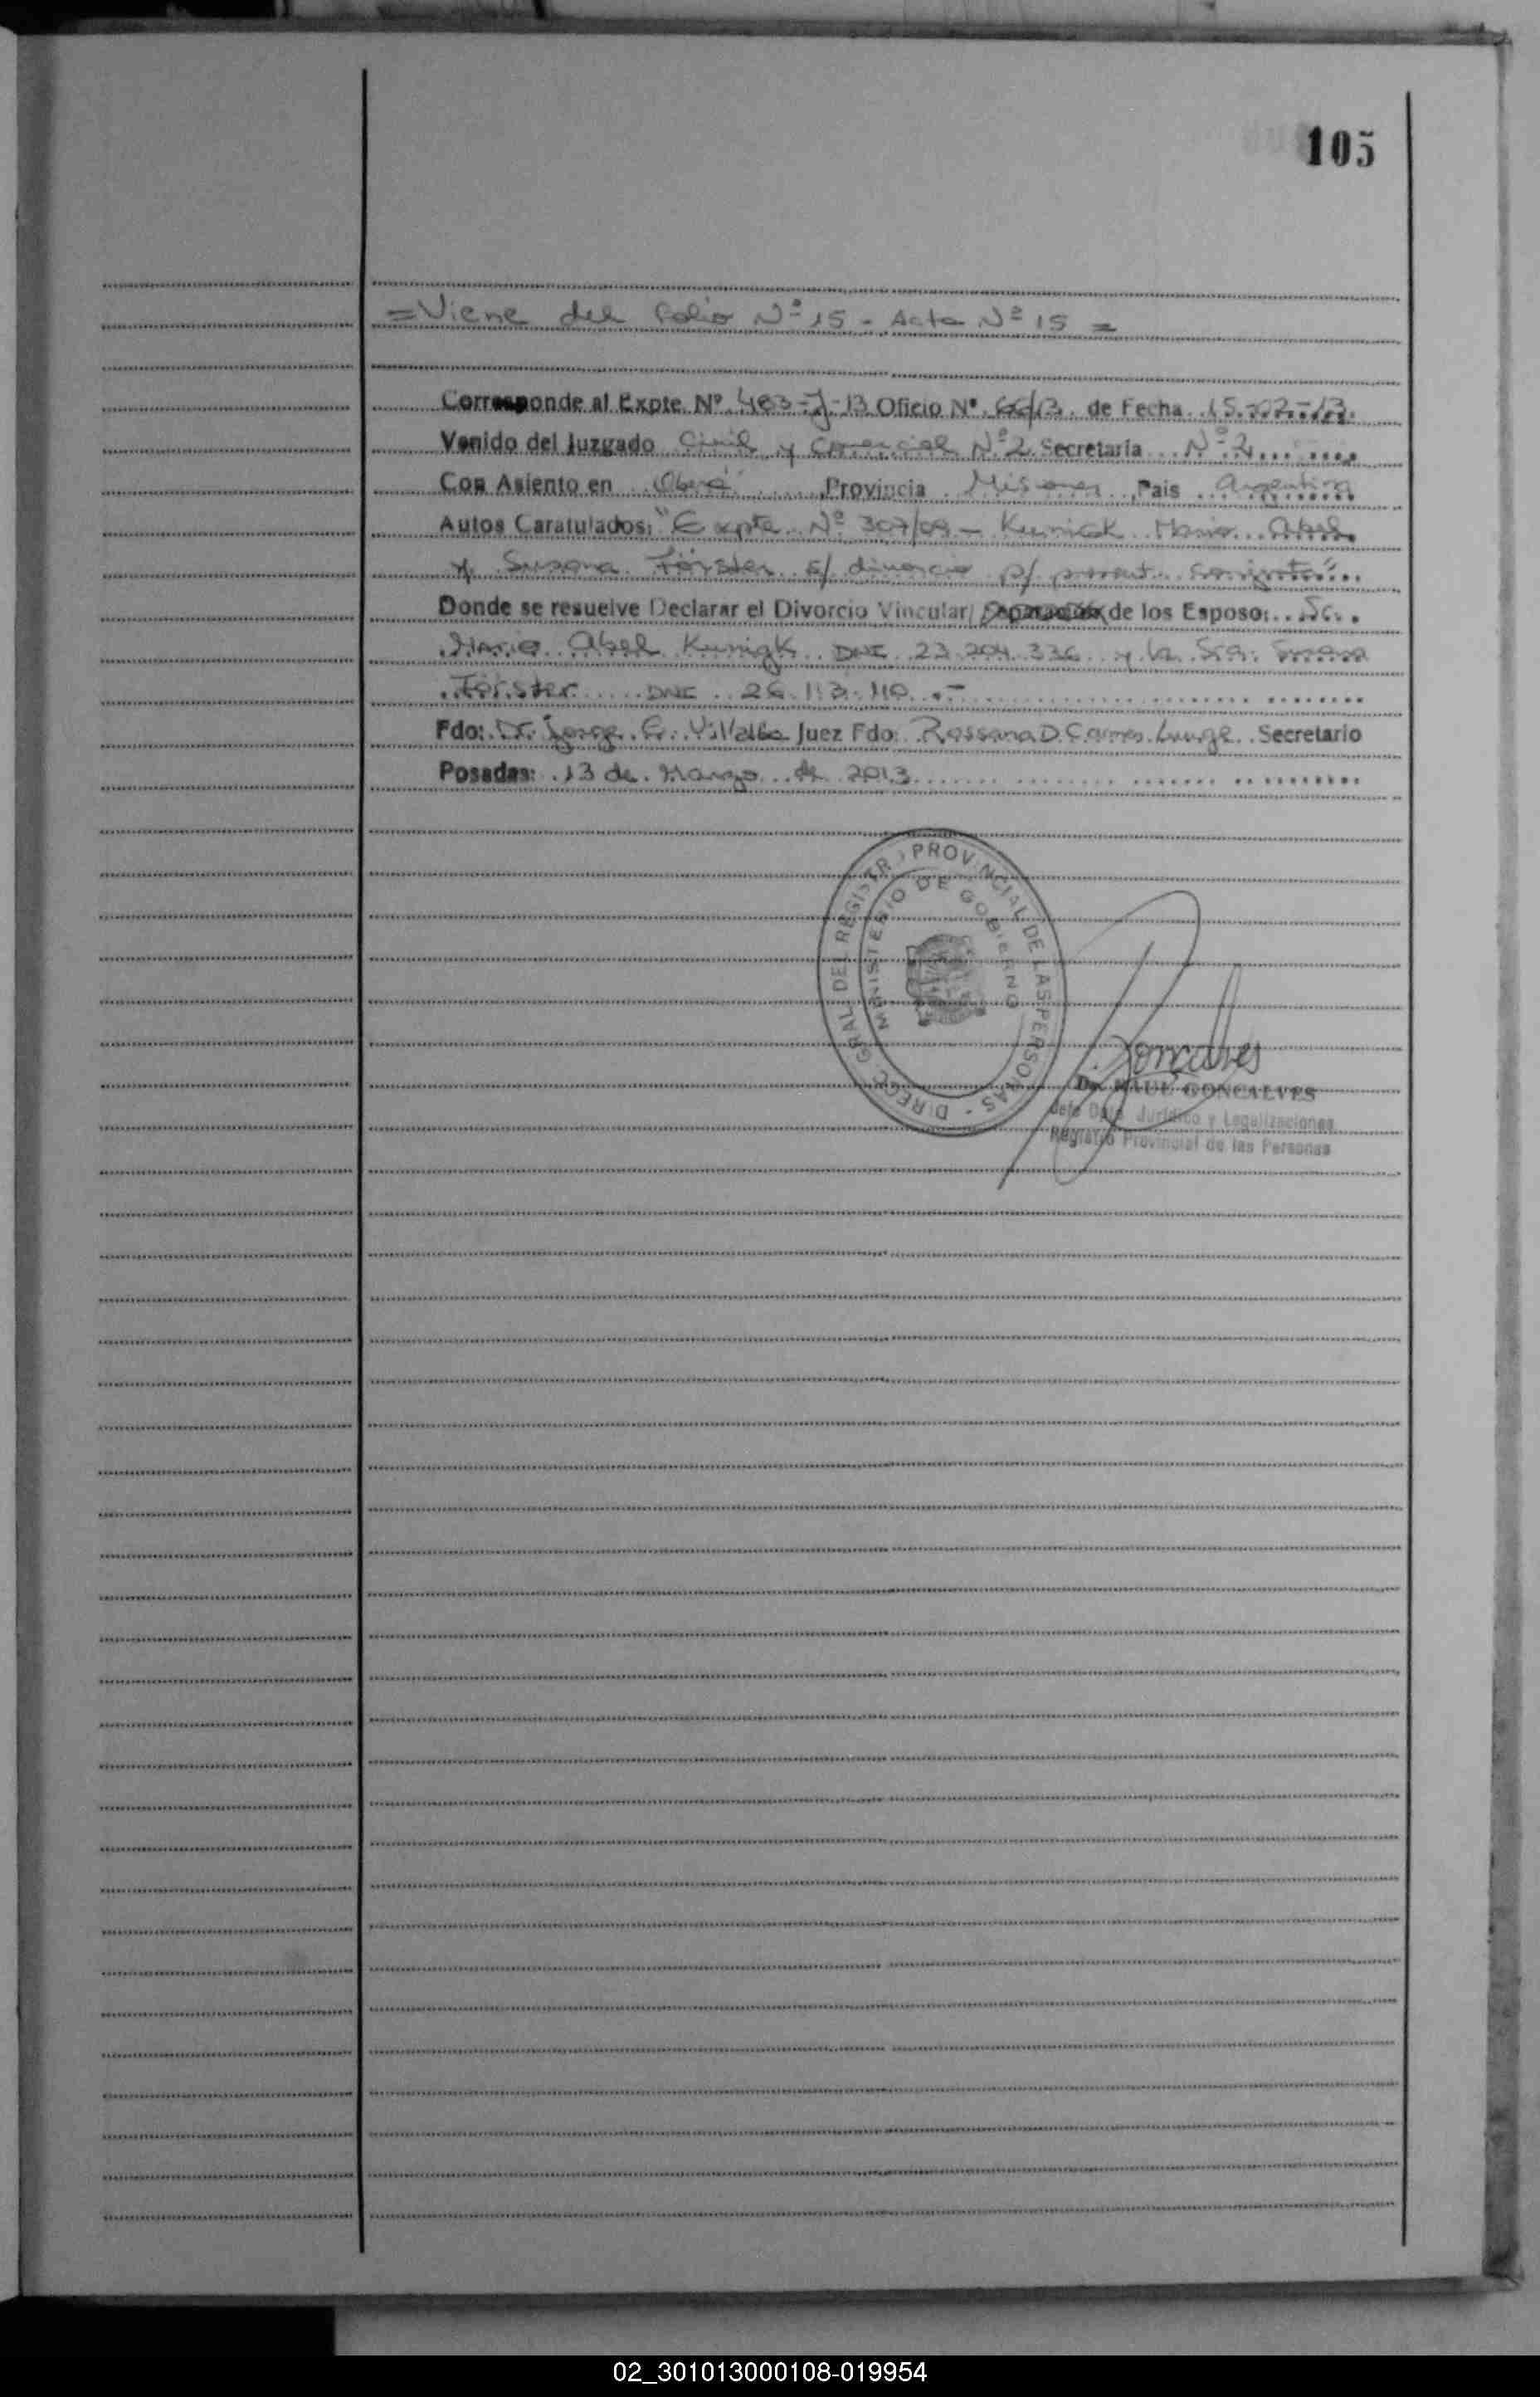 105
=Viene del folio Nº 15 - Acta Nº 15 =
Corresponde al Expte. Nº 483-J-13 Oficio Nº 66/13 de Fecha 15-02-13
Venido del Juzgado Civil y Comercial Nº 2 Secretaría Nº 2
Con Asiento en Oberá Provincia Misiones, Pais Argentina
Autos Caratulados: "Expte. Nº 307/09 - Kunigk Mario Abel
y Susana Förster s/ divorcio p/ present. conjunta"
Donde se resuelve Declarar el Divorcio Vincular/ Separación de los Esposo: Sr.
Mario Abel Kunigk DNI 23.204.336 y la Sra. Susana
Förster DNI 26.113.110.-
Fdo: Dr. Jorge E. Villalba Juez Fdo: Rossana D. Secretario
Posadas: 13 de Marzo de 2013
DIRECC. GRAL. DEL REGISTRO PROVINCIAL DE LAS PERSONAS -
MINISTERIO DE GOBIERNO
Goncalves
Dr. RAUL GONCALVES
Jefe Dpto. Jurídico y Legalizaciones
Registro Provincial de las Personas
02_301013000108-019954